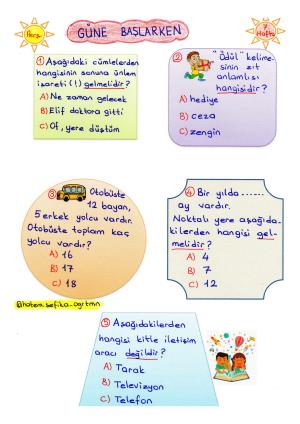 Perş.
GÜNE BAŞLARKEN
7. Hafta
① Aşağıdaki cümlelerden
hangisinin sonuna ünlem
işareti (!) gelmelidir?
A) Ne zaman gelecek
B) Elif doktora gitti
C) Of, yere düştüm
② "Ödül" kelime-
sinin zıt
anlamlısı
hangisidir?
A) hediye
B) ceza
C) zengin
③ Otobüste
12 bayan,
5 erkek yolcu vardır.
Otobüste toplam kaç
yolcu vardır?
A) 16
B) 17
C) 18
④ Bir yılda ......
ay vardır.
Noktalı yere aşağıda-
kilerden hangisi gel-
melidir?
A) 4
B) 7
C) 12
@hatem.sefika_ogrtmn
⑤ Aşağıdakilerden
hangisi kitle iletişim
aracı değildir?
A) Tarak
B) Televizyon
C) Telefon